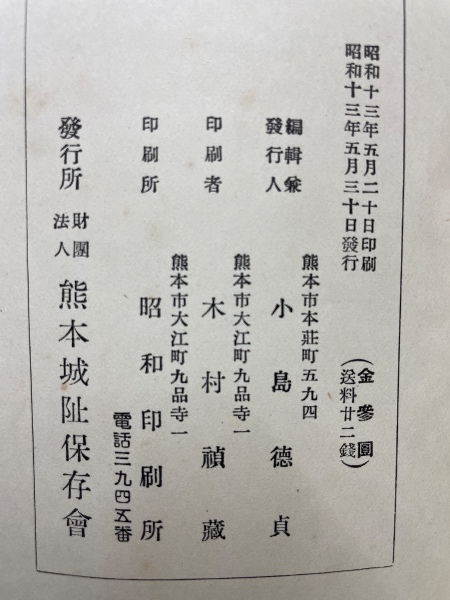 昭和十三年五月二十日印刷
昭和十三年五月三十日發行
(金參圓)
(送料廿二錢)
編輯兼
發行人
熊本市本莊町五九四
小島德貞
印刷者
熊本市大江町九品寺一
木村禎藏
印刷所
熊本市大江町九品寺一
昭和印刷所
電話三九四五番
發行所
財團
法人
熊本城阯保存會